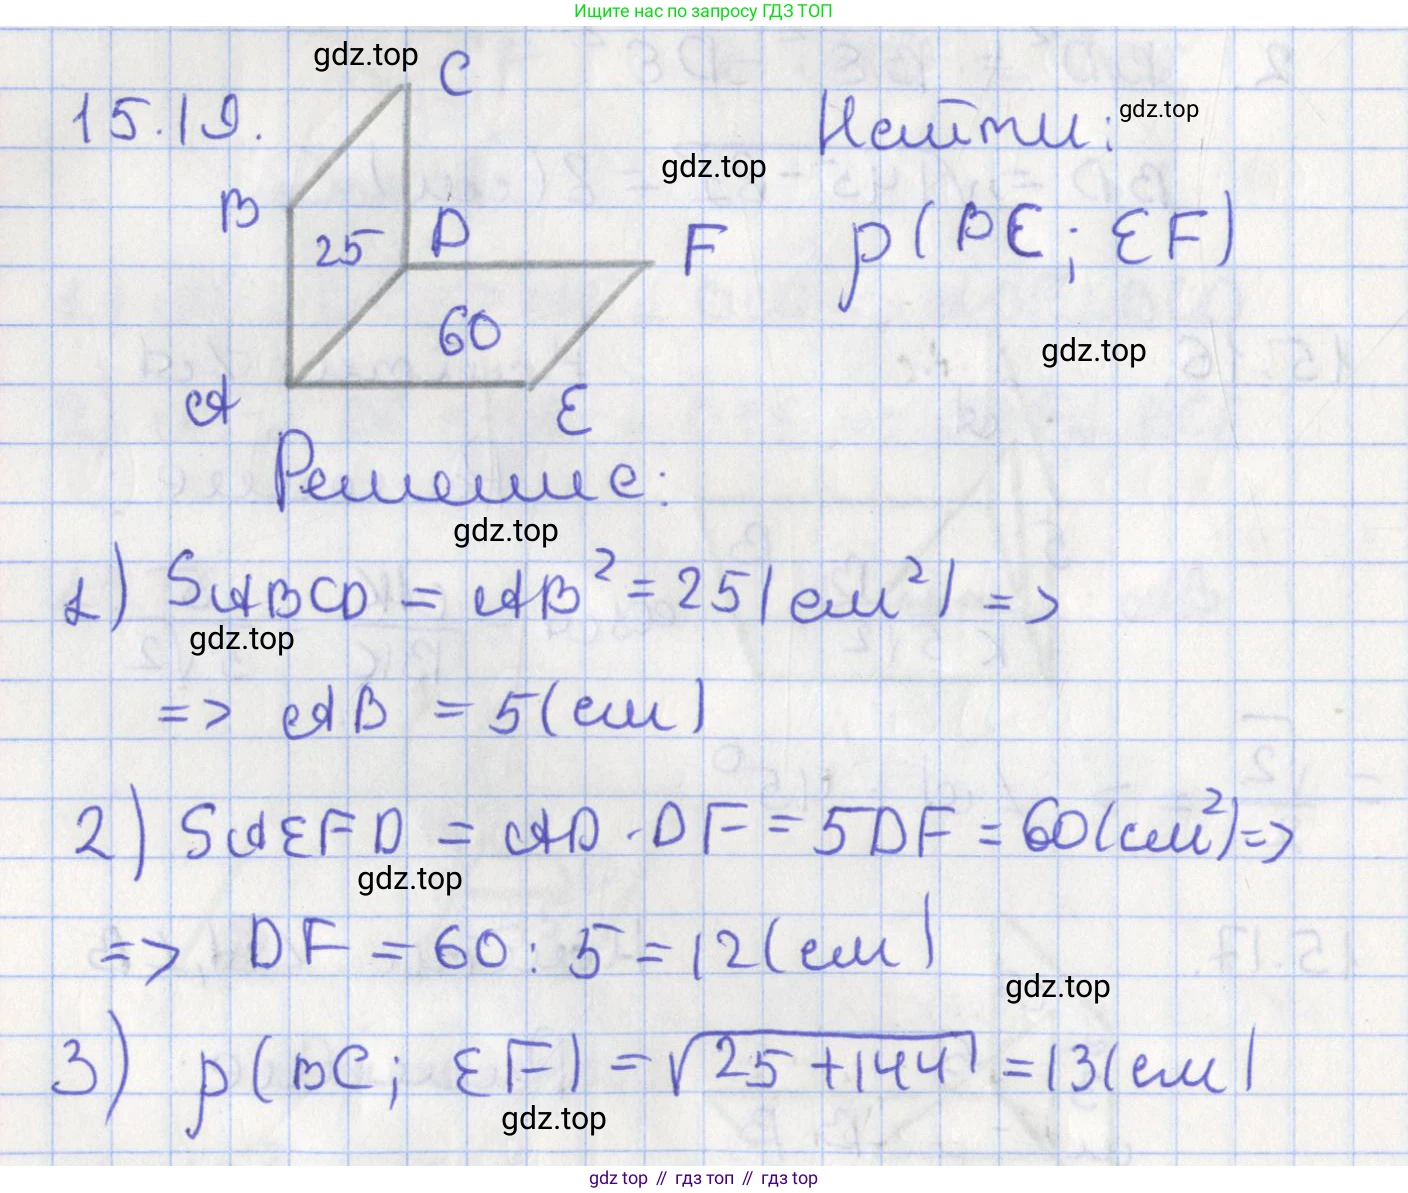 Ищите нас по запросу ГДЗ ТОП
gdz.top
C
15.19.
Найти:
gdz.top
gdz.top
B
25
D
F
ρ(BC; EF)
60
gdz.top
A
E
Решение:
gdz.top
1) SABCD = AB² = 25(см²) =>
gdz.top
=> AB = 5(см)
2) SAEFD = AD · DF = 5DF = 60(см²) =>
gdz.top
=> DF = 60 : 5 = 12(см)
gdz.top
3) ρ(BC; EF) = √25 + 144 = 13(см)
gdz.top
gdz top // гдз топ // гдз top